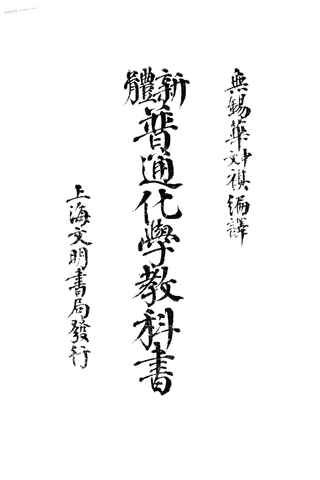 無錫華文祺編譯
新體
普通化學教科書
上海文明書局發行